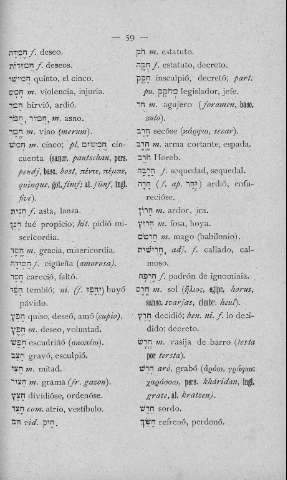 — 59 —
חֶמְדָּה f. deseo.
חֲמֻדוֹת f. deseos.
חֲמִישִׁי quinto, el cinco.
חָמָס m. violencia, injuria.
חָמַר hirvió, ardió.
חֲמוֹר, חֲמֹר m. asno.
חֶמֶר m. vino (merum).
חָמֵשׁ m. cinco; pl. חֲמִשִּׁים cin-
cuenta (sanscr. pantschan, pers.
pendj, bast. bost, πέντε, πέμπε,
quinque, got. fimf; al. fünf, ingl.
five).
חֲנִית f. asta, lanza.
חָנַן fué propicio; hit. pidió mi-
sericordia.
חֶסֶד m. gracia, misericordia.
חֲסִידָה f. cigüeña (amorosa).
חָסֵר careció, faltó.
חָפַז tembló; ni. (f. יֵחָפֵז) huyó
pávido.
חָפֵץ quiso, deseó, amó (cupio).
חֵפֶץ m. deseo, voluntad.
חָפַשׂ escudriñó
חָצַב gravó, esculpió.
חֲצִי m. mitad.
חָצִיר m. grama (fr. gazon).
חָצַץ dividióse, ordenóse.
חָצֵר com. atrio, vestíbulo.
חֵק vid. חֵיק.
חֹק m. estatuto.
חֻקָּה f. estatuto, decreto.
חָקַק insculpió, decretó; part.
po. מְחֹקֵק legislador, jefe.
חֹר m. agujero (foramen, basc.
zulo).
חָרֵב secóse
חֶרֶב m. arma cortante, espada.
חֹרֵב Horeb.
חָרָבָה f. sequedad, sequedal.
חָרָה (f. ap. יִחַר) ardió, enfu-
recióse.
חָרוֹן m. ardor, ira.
חָרוּץ m. fosa, hoya.
חַרְטֹם m. mago (babilonio).
חֲרִישִׁית adj. f. callado, cal-
moso.
חֶרְפָּה f. padrón de ignominia.
חֶרֶס m. sol
חָרַץ decidió; ben. ni. f. lo deci-
dido: decreto.
חֶרֶשׂ m. rasija de barro (testa
por tersta).
חָרַשׁ aró, grabó
pers. kháridan, ingl.
grate, al. kratzen).
חֵרֵשׁ sordo.
חָשַׂךְ refrenó, perdonó.